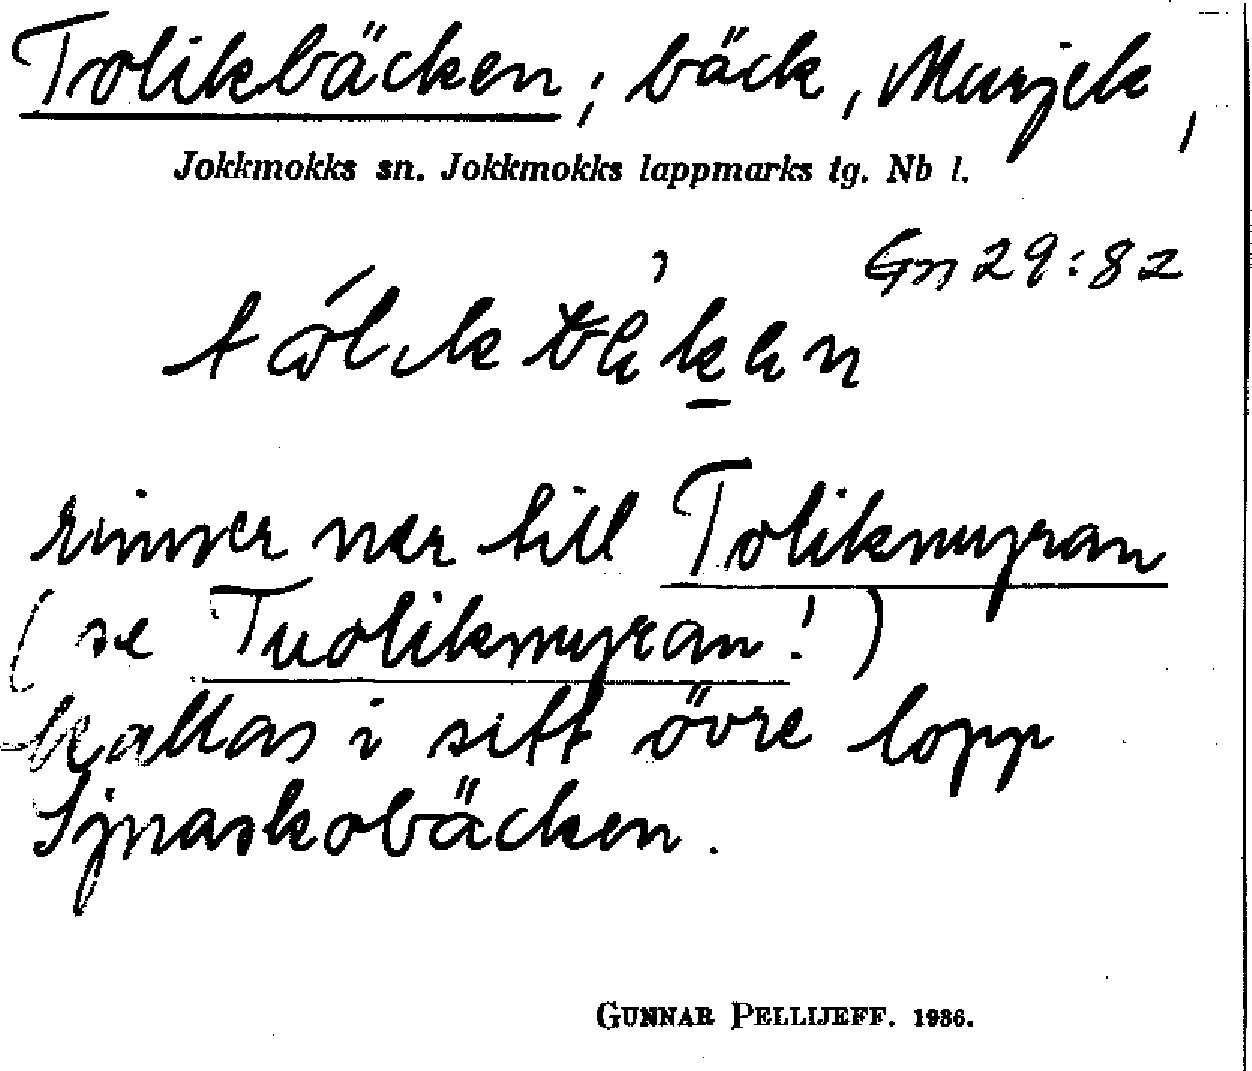 Tolikbäcken; bäck, Murjek,
Jokkmokks sn. Jokkmokks lappmarks tg. Nb l.
Gn 29:82
rinner ner till Tolikmyran
(se Tuolikmyran!)
kallas i sitt övre lopp
Sjnaskobäcken.
GUNNAR PELLIJEFF. 1936.